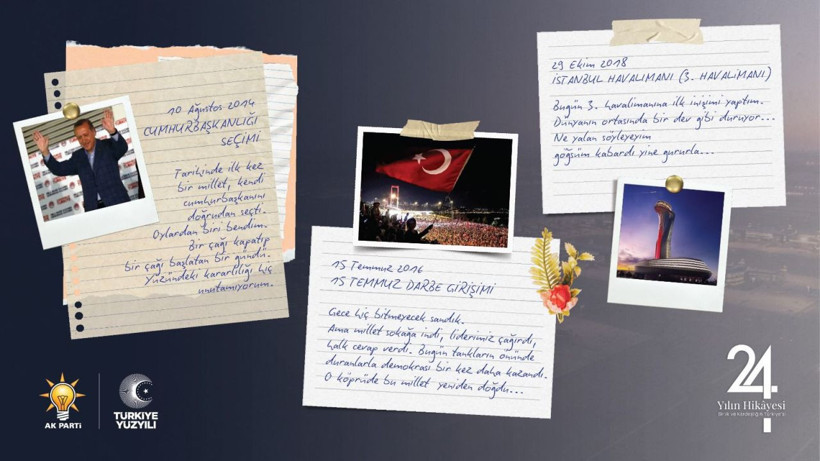 10 Ağustos 2014
CUMHURBAŞKANLIĞI
SEÇİMİ
Tarihinde ilk kez
bir millet, kendi
cumhurbaşkanını
doğrudan seçti.
Oylardan biri bendim.
Bir çağı kapatıp
bir çağı başlatan bir gündü.
Yüzündeki kararlılığı hiç
unutamıyorum.
15 Temmuz 2016
15 TEMMUZ DARBE GİRİŞİMİ
Gece hiç bitmeyecek sandık.
Ama millet sokağa indi, liderimiz çağırdı,
halk cevap verdi. Bugün tankların önünde
duranlarla demokrasi bir kez daha kazandı.
O köprüde bu millet yeniden doğdu...
29 Ekim 2018
İSTANBUL HAVALİMANI (3. HAVALİMANI)
Bugün 3. havalimanına ilk inişimi yaptım.
Dünyanın ortasında bir dev gibi duruyor...
Ne yalan söyleyeyim
göğsüm kabardı yine gururla...
AK PARTİ
TÜRKİYE
YÜZYILI
24
Yılın Hikâyesi